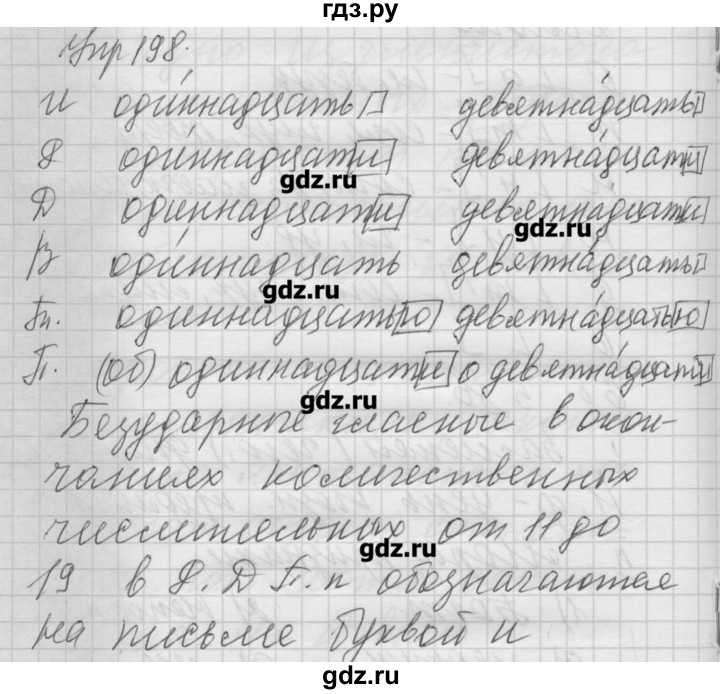 гдз.ру
Упр 198.
И оди́ннадцать девятна́дцать
Р оди́ннадцати девятна́дцати
gdz.ru
Д оди́ннадцати девятна́дцати
gdz.ru
В оди́ннадцать девятна́дцать
gdz.ru
Тп. одиннадцатью девятна́дцатью
П. (об) одиннадцати о девятна́дцати
gdz.ru
Безударные гласные в окон-
чаниях количественных
числительных от 11 до
gdz.ru
19 в Р. Д П. п обозначаются
на письме буквой и
гдз.ру